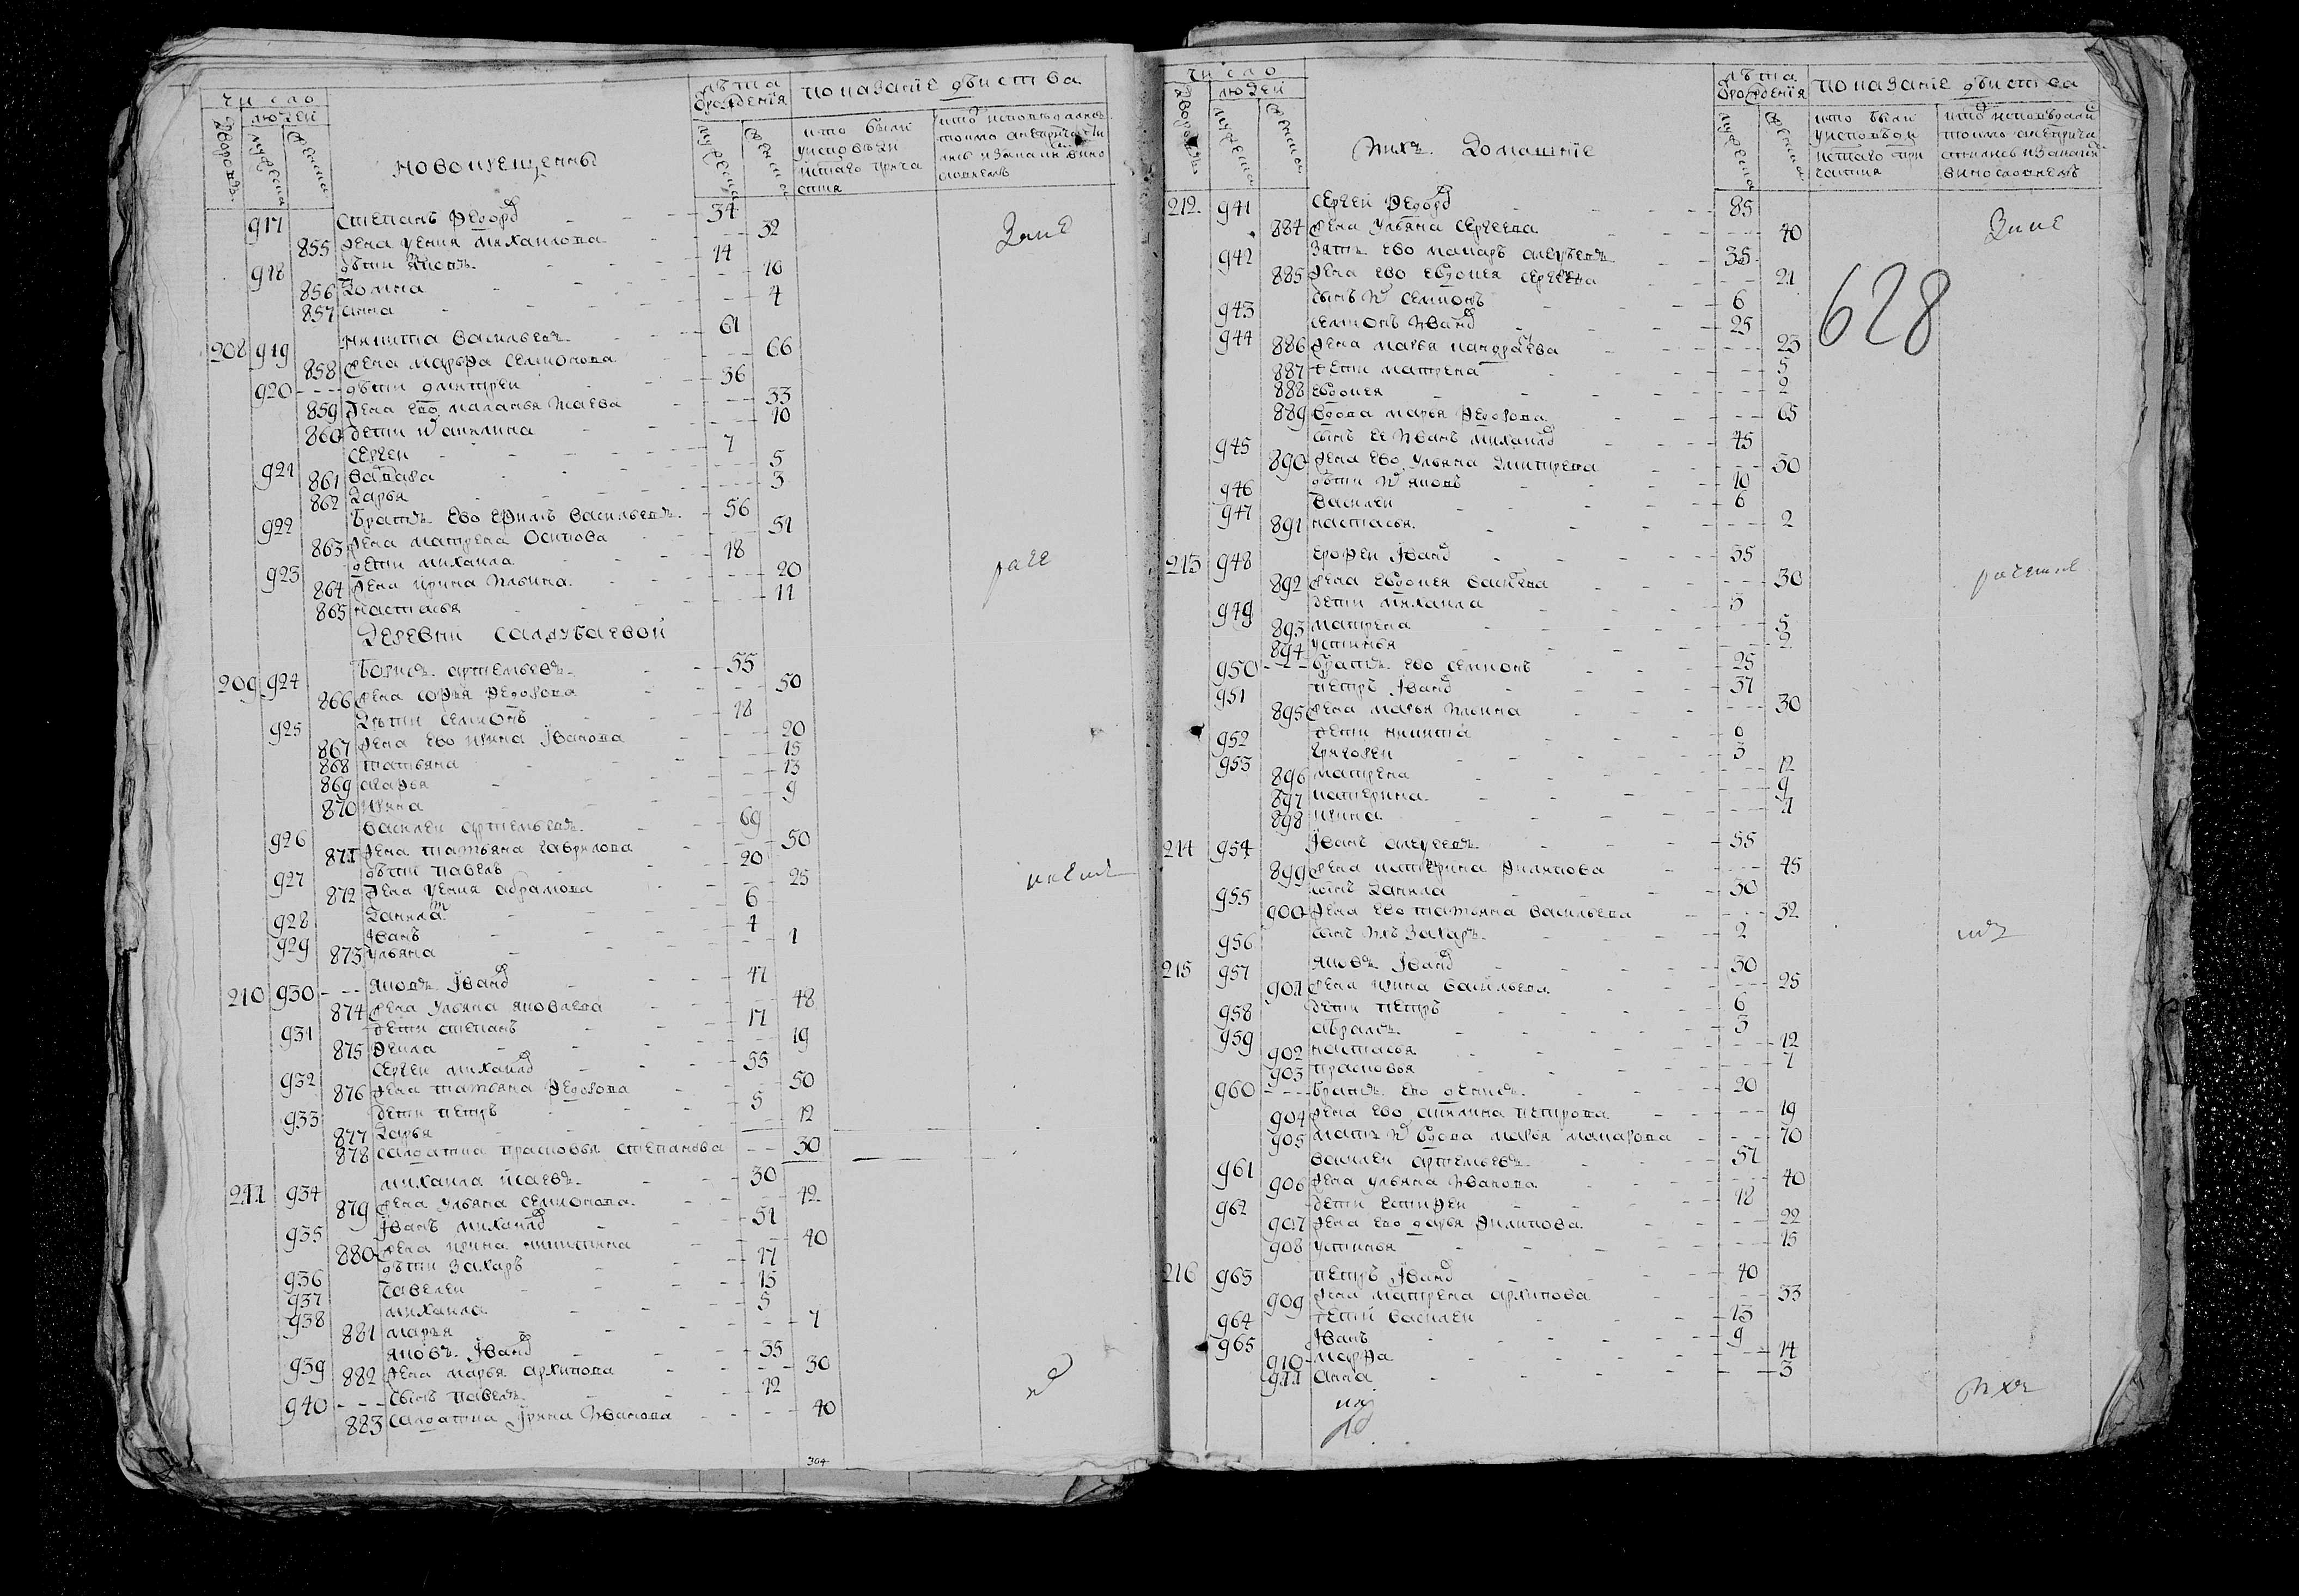 число
людей
дворовъ
мужеска
женска
новокрещенны
лѣта
ѿрожденїя
мужеска
женска
показанїе дѣиства
кто были
917 Степанъ Ѳедоро 34
855 жена Ѵенїя Михаилова 32
918 дѣти 14
856 Домна 10
857 Анна 4
208 919 Никита Васильевъ 61
858 жена Марѳа Семионова 66
920 дѣти Дмитреи 36
859 жена ево Маланья Исаева 33
860 дети их Акилина 10
921 Сергеи 7
861 Варвара 5
862 Дарья 3
922 братъ ево Еѳимъ Васильевъ 56
863 жена Матрена Осипова 51
923 дети Михаила 18
864 жена Ирина Ильина 20
865 Настасья 11
Деревни
209 924 Борисъ Артемьевъ 55
866 жена Соѳья Ѳедорова 50
925 дѣти Семионъ 18
867 жена ево Ирина Їванова 20
868 Татьяна 15
869 Агаѳья 13
870 Ирина 9
926 Василеи Артемьевъ 69
871 жена Татьяна Гаврилова 50
927 дѣти Павелъ 20
872 жена Ѵенїя Абрамова 25
928 Данила 6
929 Їванъ 4
873 Ульяна 1
210 930 Яковъ Ївано 47
874 жена Ульяна Яковлева 48
931 дети Степанъ 17
875 Ѳекла 19
932 Сергеи Михаило 55
876 жена Татьяна Ѳедорова 50
933 дети Петръ 5
877 Дарья 12
878 салдатка Прасковья Степанова 30
211 934 Михаила Исаевъ 30
879 жена Ульяна Семионова 42
935 Їванъ Михаило 51
880 жена Ирина Никитина 40
936 дѣти Захаръ 17
937 Савелеи 15
938 Михаила 5
881 Марья 7
939 Яковъ Ївано 35
882 жена Марья Архипова 30
940 сынъ Павелъ 12
883 салдатка Їрина Иванова 40
304
число
людей
дворовъ
мужеска
женска
Ихъ домашнїе
лѣта
ѿрожденїя
мужеска
женска
показанїе дѣиства
кто были
628
212 941 Сергеи Ѳедоро 85
884 жена Ульяна Сергеева 40
942 зять ево Макаръ Алеѯеевъ 35
885 жена ево Евдокея Сергеева 21
943 сынъ их Семионъ 6
944 Семионъ Ивано 25
886 жена Марья 23
887 дети Матрена 5
888 Евдокея 2
889 вдова Марья Ѳедорова 65
945 сынъ ее Иванъ Михаило 45
890 жена ево Ульяна Дмитрева 50
946 дѣти их Яковъ 10
947 Василеи 6
891 Настасья 2
213 948 Ероѳеи Ївано 35
892 жена Евдокея Васильева 30
949 дети Михаила 3
893 Матрена 5
894 Устинья 2
950 братъ ево Семионъ 25
951 Петръ Ївано 37
895 жена Марья Ильина 30
952 дети Никита 6
953 Григореи 3
896 Матрена 12
897 Катерина 9
898 Ирина 4
214 954 Їванъ Алеѯеевъ 55
899 жена Катерина Ѳилипова 45
955 сынъ Данила 30
900 жена ево Татьяна Васильева 32
956 сынъ ихъ Захаръ 2
215 957 Яковъ Ївано 30
901 жена Ирина Васильева 25
958 дети Петръ 6
959 Абрамъ 3
902 Настасья 12
903 Прасковья 7
960 братъ ево Денисъ 20
904 жена ево Акилина Петрова 19
905 мать их вдова Марья Макарова 70
961 Василеи Артемьевъ 57
906 жена Ульяна Иванова 40
962 дети Естиѳеи 18
907 жена ево Дарья Ѳилипова 22
908 Устинья 15
216 963 Петръ Ївано 40
909 жена Матрена Архипова 33
964 дети Василеи 13
965 Їванъ 9
910 Марѳа 14
911 Анна 3